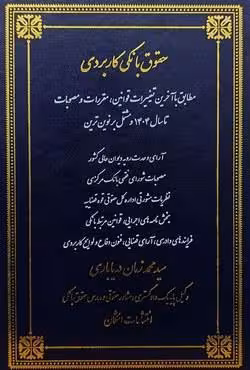 حقوق بانکی کاربردی
مطابق با آخرین تغییرات قوانین، مقررات و مصوبات
تا سال ۱۴۰۴ و مشتمل بر نوین ترین
آرای وحدت رویه دیوان عالی کشور
مصوبات شورای فقهی بانک مرکزی
نظریات مشورتی اداره کل حقوقی قوه قضاییه
بخش نامه های اجرایی، قوانین مرتبط بانکی
فرایندهای دادرسی، آرای قضایی، فنون دفاع و لوایح کاربردی
سید محمد زمان دریاباری
وکیل پایه یک دادگستری و مشاور حقوقی و مدرس حقوق بانکی
انتشارات اشکان